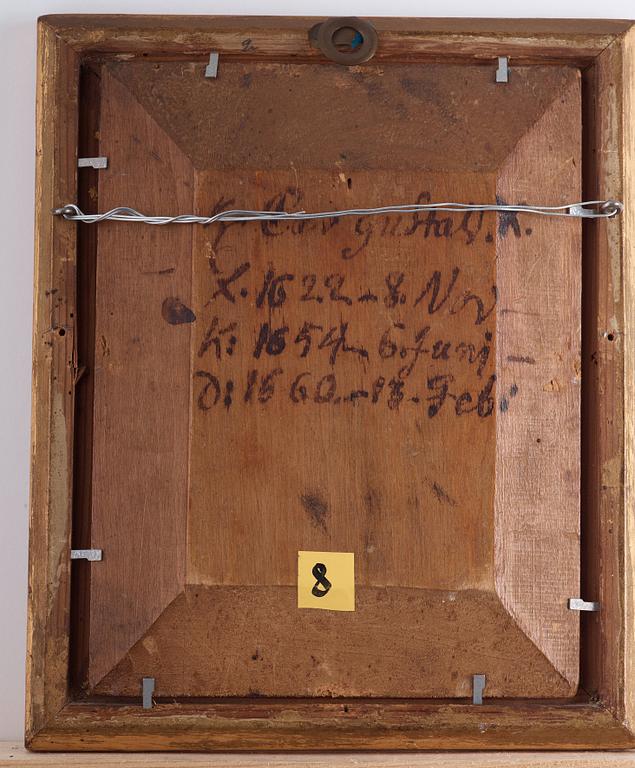 K. Carl Gustaf. X.
X. 1622-8. Nov
K: 1654 6. Junj
d: 1660.-13. Feb:
8